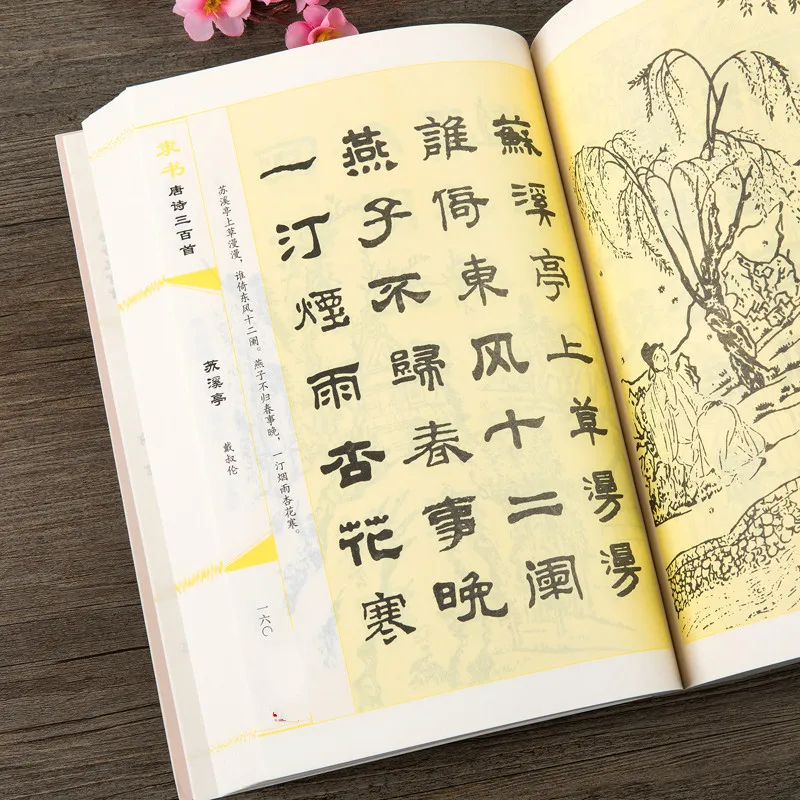 蘇溪亭上草漫漫
誰倚東风十二阑
燕子不歸春事晚
一汀煙雨杏花寒
苏溪亭上草漫漫,谁倚东风十二阑。燕子不归春事晚,一汀烟雨杏花寒。
隶书
唐诗三百首
苏溪亭
戴叔伦
一六〇